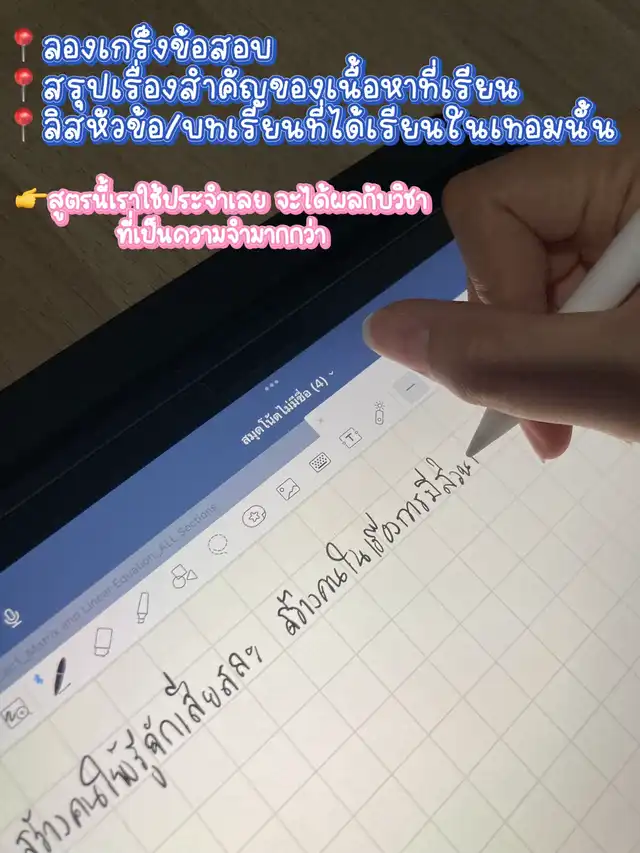 📍ลองเกร็งข้อสอบ
📍สรุปเรื่องสำคัญของเนื้อหาที่เรียน
📍ลิสหัวข้อ/บทเรียนที่ได้เรียนในเทอมนั้น
👉สูตรนี้เราใช้ประจำเลย จะได้ผลกับวิชา
ที่เป็นความจำมากกว่า
สมุดโน้ตไม่มีชื่อ (4)
Matrix and Linear Equation_ALL Sections
สร้างคนให้รู้จักเสียสละ สร้างคนในเรื่องการมีส่วน